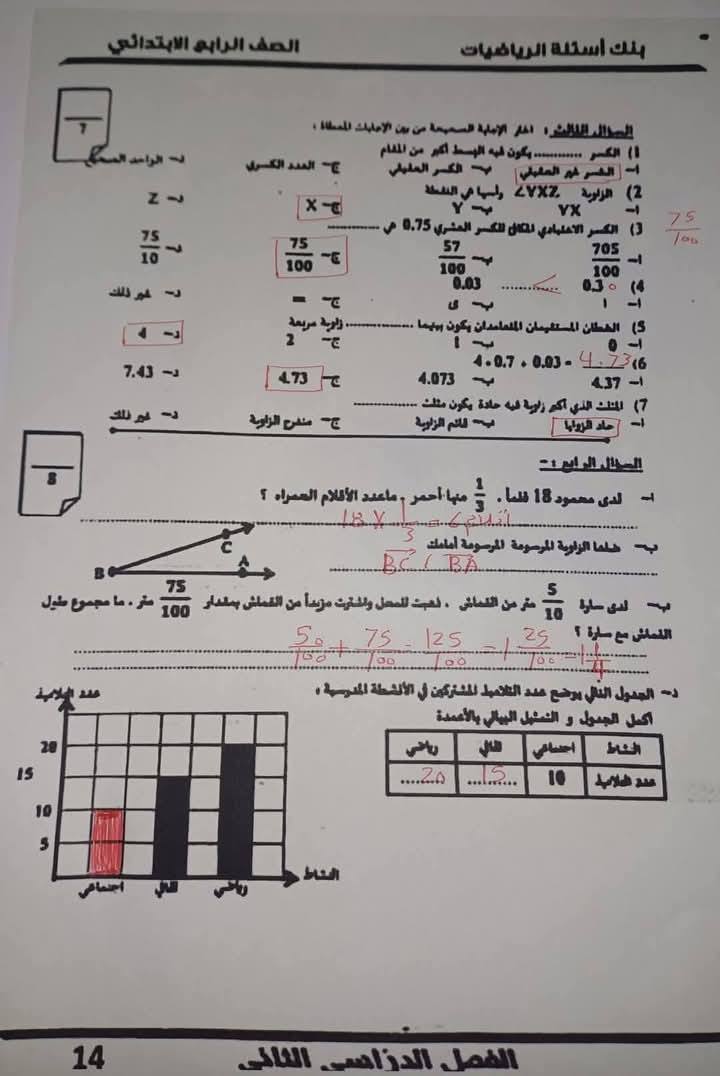 بنك أسئلة الرياضيات الصف الرابع الابتدائي
7
السؤال الثالث : اختر الإجابة الصحيحة من بين الإجابات المعطاة :
1) الكسر ............ يكون فيه البسط أكبر من المقام
أ- الكسر غير الحقيقي ب- الكسر الحقيقي ج- العدد الكسري د- الواحد الصحيح
2) الزاوية ∠YXZ رأسها هي النقطة
أ- YX ب- Y ج- X د- Z
3) الكسر الاعتيادي المكافئ للكسر العشري 0.75 هي ............
75/100
أ- 705/100 ب- 57/100 ج- 75/100 د- 75/10
4) 0.30 ............ < 0.03
أ- ا ب- ى ج- = د- غير ذلك
5) الخطان المستقيمان المتعامدان يكون بينهما ............ زاوية مربعة
أ- 0 ب- 1 ج- 2 د- 4
6) 4 + 0.7 + 0.03 = 4.73
أ- 4.37 ب- 4.073 ج- 4.73 د- 7.43
7) المثلث الذي أكبر زاوية فيه حادة يكون مثلث ............
أ- حاد الزوايا ب- قائم الزاوية ج- منفرج الزاوية د- غير ذلك
8
السؤال الرابع :-
أ- لدى محمود 18 قلماً ، 1/3 منها أحمر ، ماعدد الأقلام الحمراء ؟
18 × 1/3 = 6 أقلام
ب- ضلعا الزاوية المرسومة المرسومة أمامك
BC / BA
B C A
ب- لدى سارة 5/10 متر من القماش ، ذهبت للمحل واشترت مزيداً من القماش بمقدار 75/100 متر ، ما مجموع طول
القماش مع سارة ؟
50/100 + 75/100 = 125/100 = 1 25/100 = 1 1/4
د- الجدول التالي يوضح عدد التلاميذ المشتركين في الأنشطة المدرسية :
أكمل الجدول و التمثيل البياني بالأعمدة
النشاط اجتماعي ثقافي رياضي
عدد التلاميذ 10 15 20
عدد التلاميذ
20
15
10
5
اجتماعي ثقافي رياضي النشاط
الفصل الدراسي الثاني 14